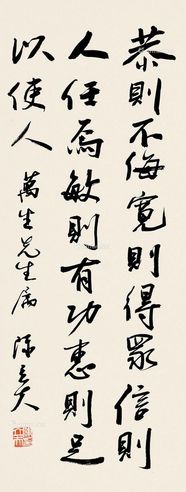 恭則不侮寬則得眾信則
人任焉敏則有功惠則足
以使人
萬生先生属 陳立夫